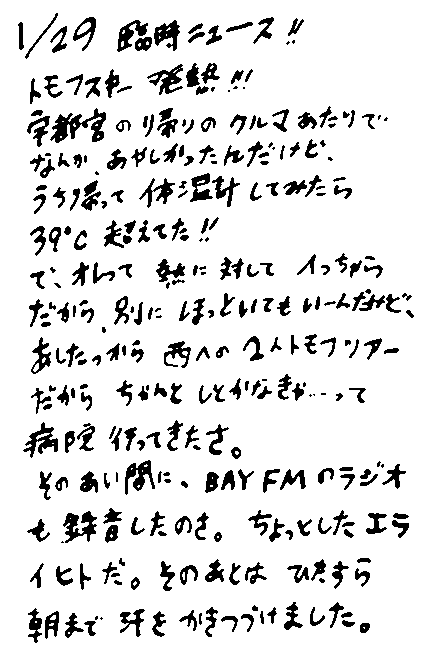 1/29 臨時ニュース!!
トモフスキー 発熱!!!
宇都宮の帰りのクルマあたりで
なんか、あやしかったんだけど、
うち帰って 体温計してみたら
39℃ 超えてた!!
で、オレって 熱に対して イっちゃら
だから、別に ほっといてもいーんだけど、
あしたっから 西への 2人トモフツアー
だから ちゃんと しとかなきゃ…って
病院 行ってきたさ。
そのあい間に、BAY FMのラジオ
も 録音したのさ。ちょっとした エラ
イヒトだ。そのあとは ひたすら
朝まで 汗を かきつづけました。